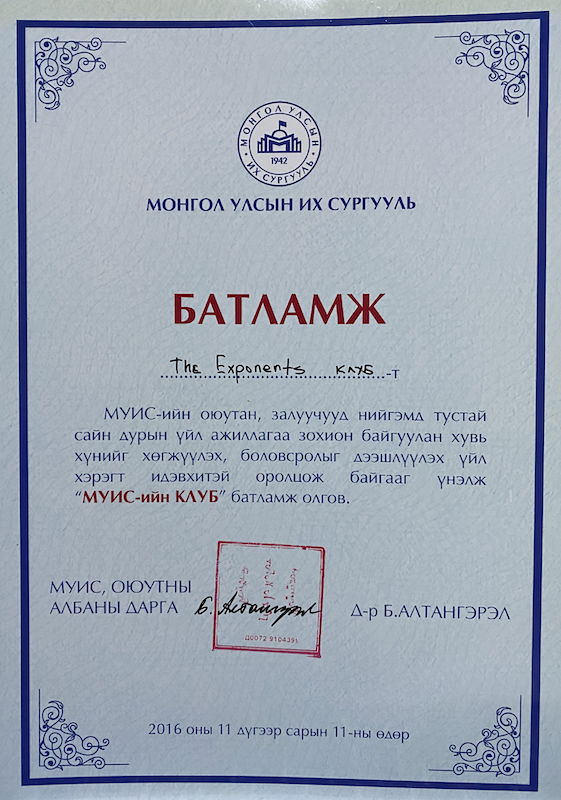 МОНГОЛ УЛСЫН
1942
ИХ СУРГУУЛЬ
МОНГОЛ УЛСЫН ИХ СУРГУУЛЬ
БАТЛАМЖ
The Exponents клуб-т
МУИС-ийн оюутан, залуучууд нийгэмд тустай
сайн дурын үйл ажиллагаа зохион байгуулан хувь
хүнийг хөгжүүлэх, боловсролыг дээшлүүлэх үйл
хэрэгт идэвхитэй оролцож байгааг үнэлж
“МУИС-ийн КЛУБ” батламж олгов.
МУИС, ОЮУТНЫ
АЛБАНЫ ДАРГА
Д-р Б.АЛТАНГЭРЭЛ
2016 оны 11 дүгээр сарын 11-ны өдөр